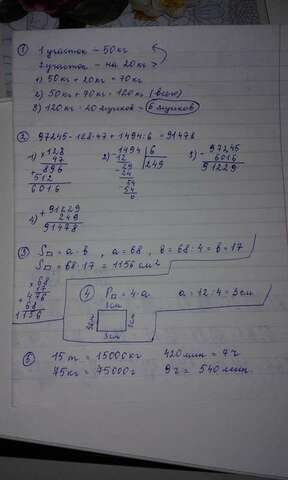 ① 1 участок – 50 кг
2 участок – на 20 кг >
1) 50 кг + 20 кг = 70 кг
2) 50 кг + 70 кг = 120 кг (всего)
3) 120 кг : 20 ящиков = 6 ящиков
② 97245 - 128·47 + 1494:6 = 91478
1) × 128
47
896
512
6016
2) 1494 | 6
12 249
29
24
54
54
0
3) - 97245
6016
91229
4) + 91229
249
91478
③ S□ = a · b, a = 68, b = 68 : 4 = b = 17
S□ = 68 · 17 = 1156 см²
× 68
17
+ 476
68
1156
④ P□ = 4 · a a = 12 : 4 = 3 см
3 см
3 см
⑤ 15 т = 15000 кг 420 мин = 7 ч
75 кг = 75000 г 9 ч = 540 мин.